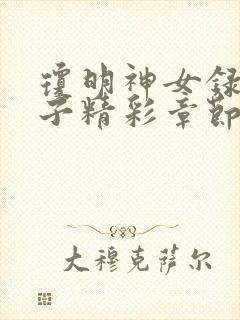 琼明神女録
子精彩章節
大穆克萨尔